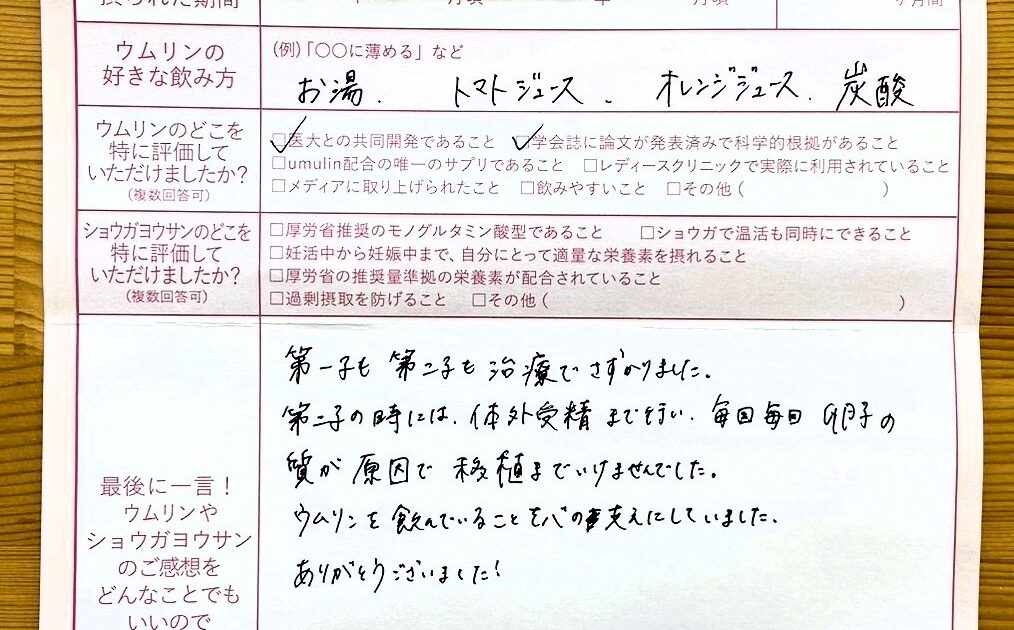 摂られた期間 年 月頃 年 月頃 ヶ月間
ウムリンの
好きな飲み方
(例)「〇〇に薄める」など
お湯. トマトジュース. オレンジジュース. 炭酸
ウムリンのどこを
特に評価して
いただけましたか?
(複数回答可)
□医大との共同開発であること □学会誌に論文が発表済みで科学的根拠があること
□umulin配合の唯一のサプリであること □レディースクリニックで実際に利用されていること
□メディアに取り上げられたこと □飲みやすいこと □その他( )
ショウガヨウサンのどこを
特に評価して
いただけましたか?
(複数回答可)
□厚労省推奨のモノグルタミン酸型であること □ショウガで温活も同時にできること
□妊活中から妊娠中まで、自分にとって適量な栄養素を摂れること
□厚労省の推奨量準拠の栄養素が配合されていること
□過剰摂取を防げること □その他( )
最後に一言!
ウムリンや
ショウガヨウサン
のご感想を
どんなことでも
いいので
第一子も 第二子も 治療でさずかりました。
第二子の時には、体外受精まで行い、毎回毎回 卵子の
質が 原因で 移植までいけませんでした。
ウムリンを飲んでいることを心の支えにしていました。
ありがとうございました!